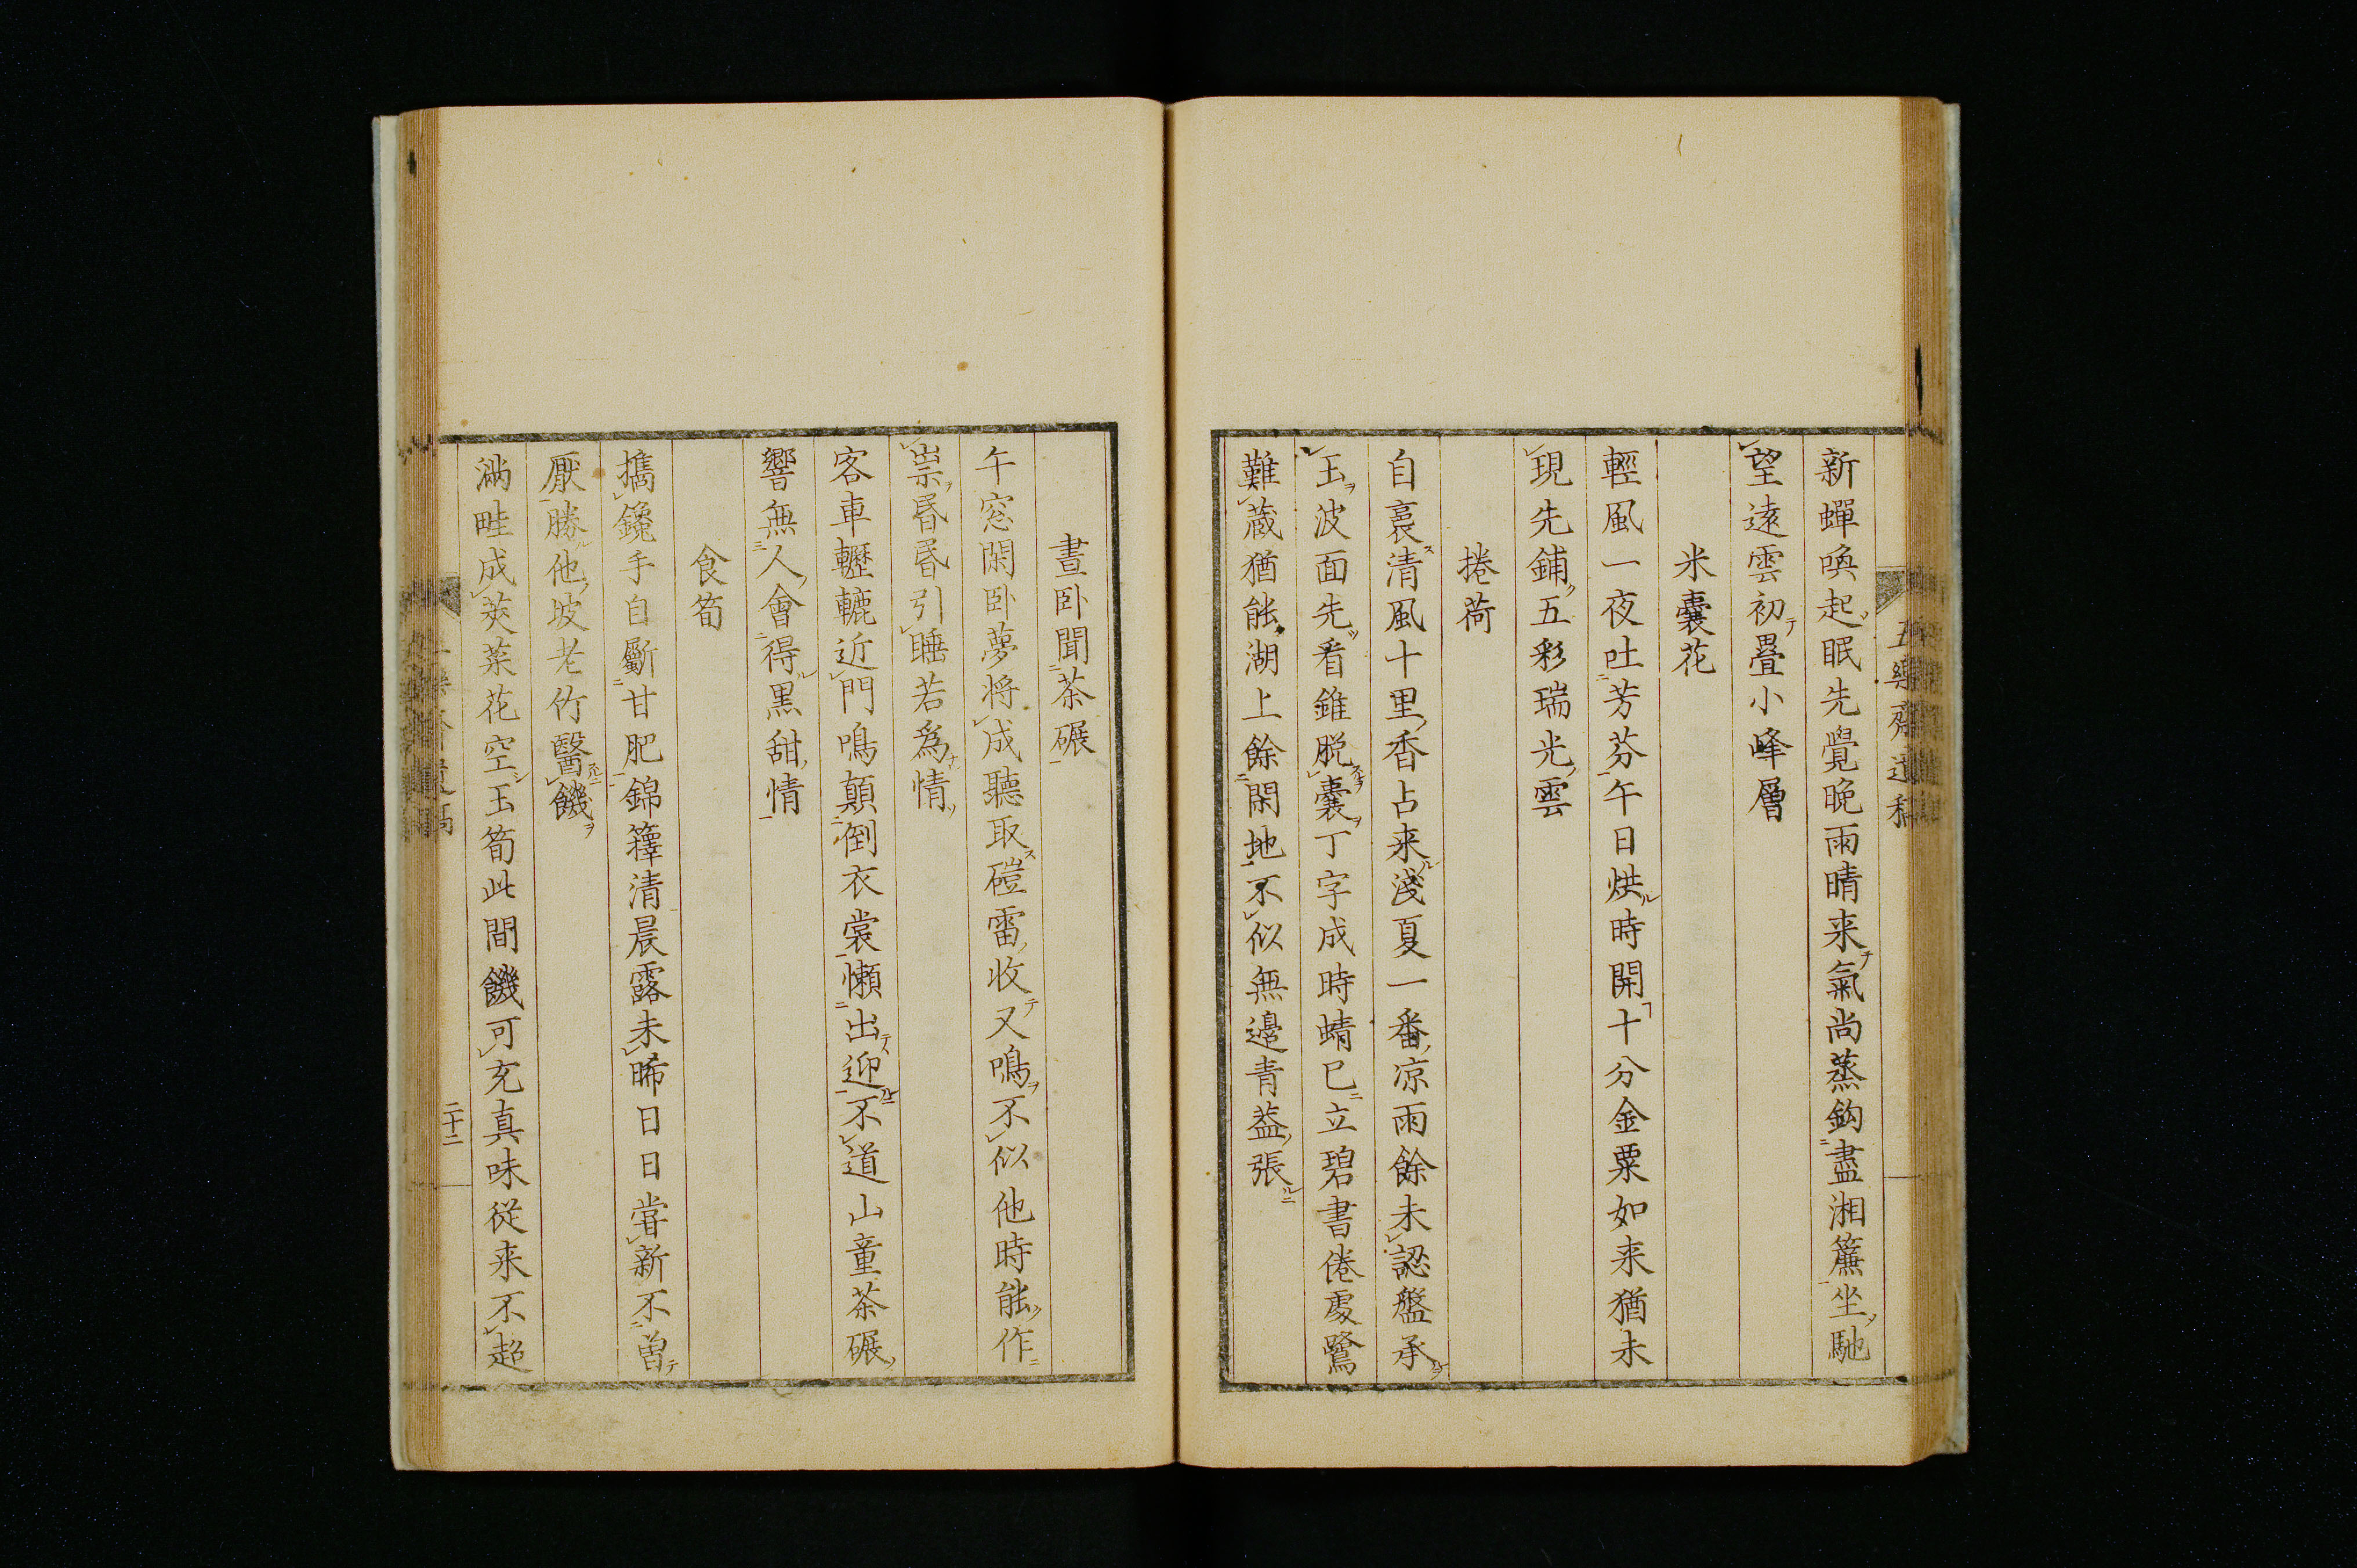 新蟬喚起眠先覺晚雨晴来氣尚蒸鈎盡湘簾坐馳
望遠雲初疊小峰層
米囊花
輕風一夜吐芳芬午日烘時開十分金粟如来猶未
現先鋪五彩瑞光雲
捲荷
自裛清風十里香占来淺夏一番凉雨餘未認盤承
玉波面先看錐脱囊丁字成時蜻已立碧書倦處鷺
難藏猶能湖上餘閑地不似無邊青蓋張
晝卧聞茶碾
午窓閑卧夢将成聽取磑雷收又鳴不似他時能作
祟昏昏引睡若為情
客車轣轆近門鳴顛倒衣裳懶出迎不道山童茶碾
響無人會得黒甜情
食筍
擕鑱手自斸甘肥錦籜清晨露未晞日日甞新不曽
厭勝他坡老竹醫饑
滿畦成莢菜花空玉筍此間饑可充真味從来不超
二十二